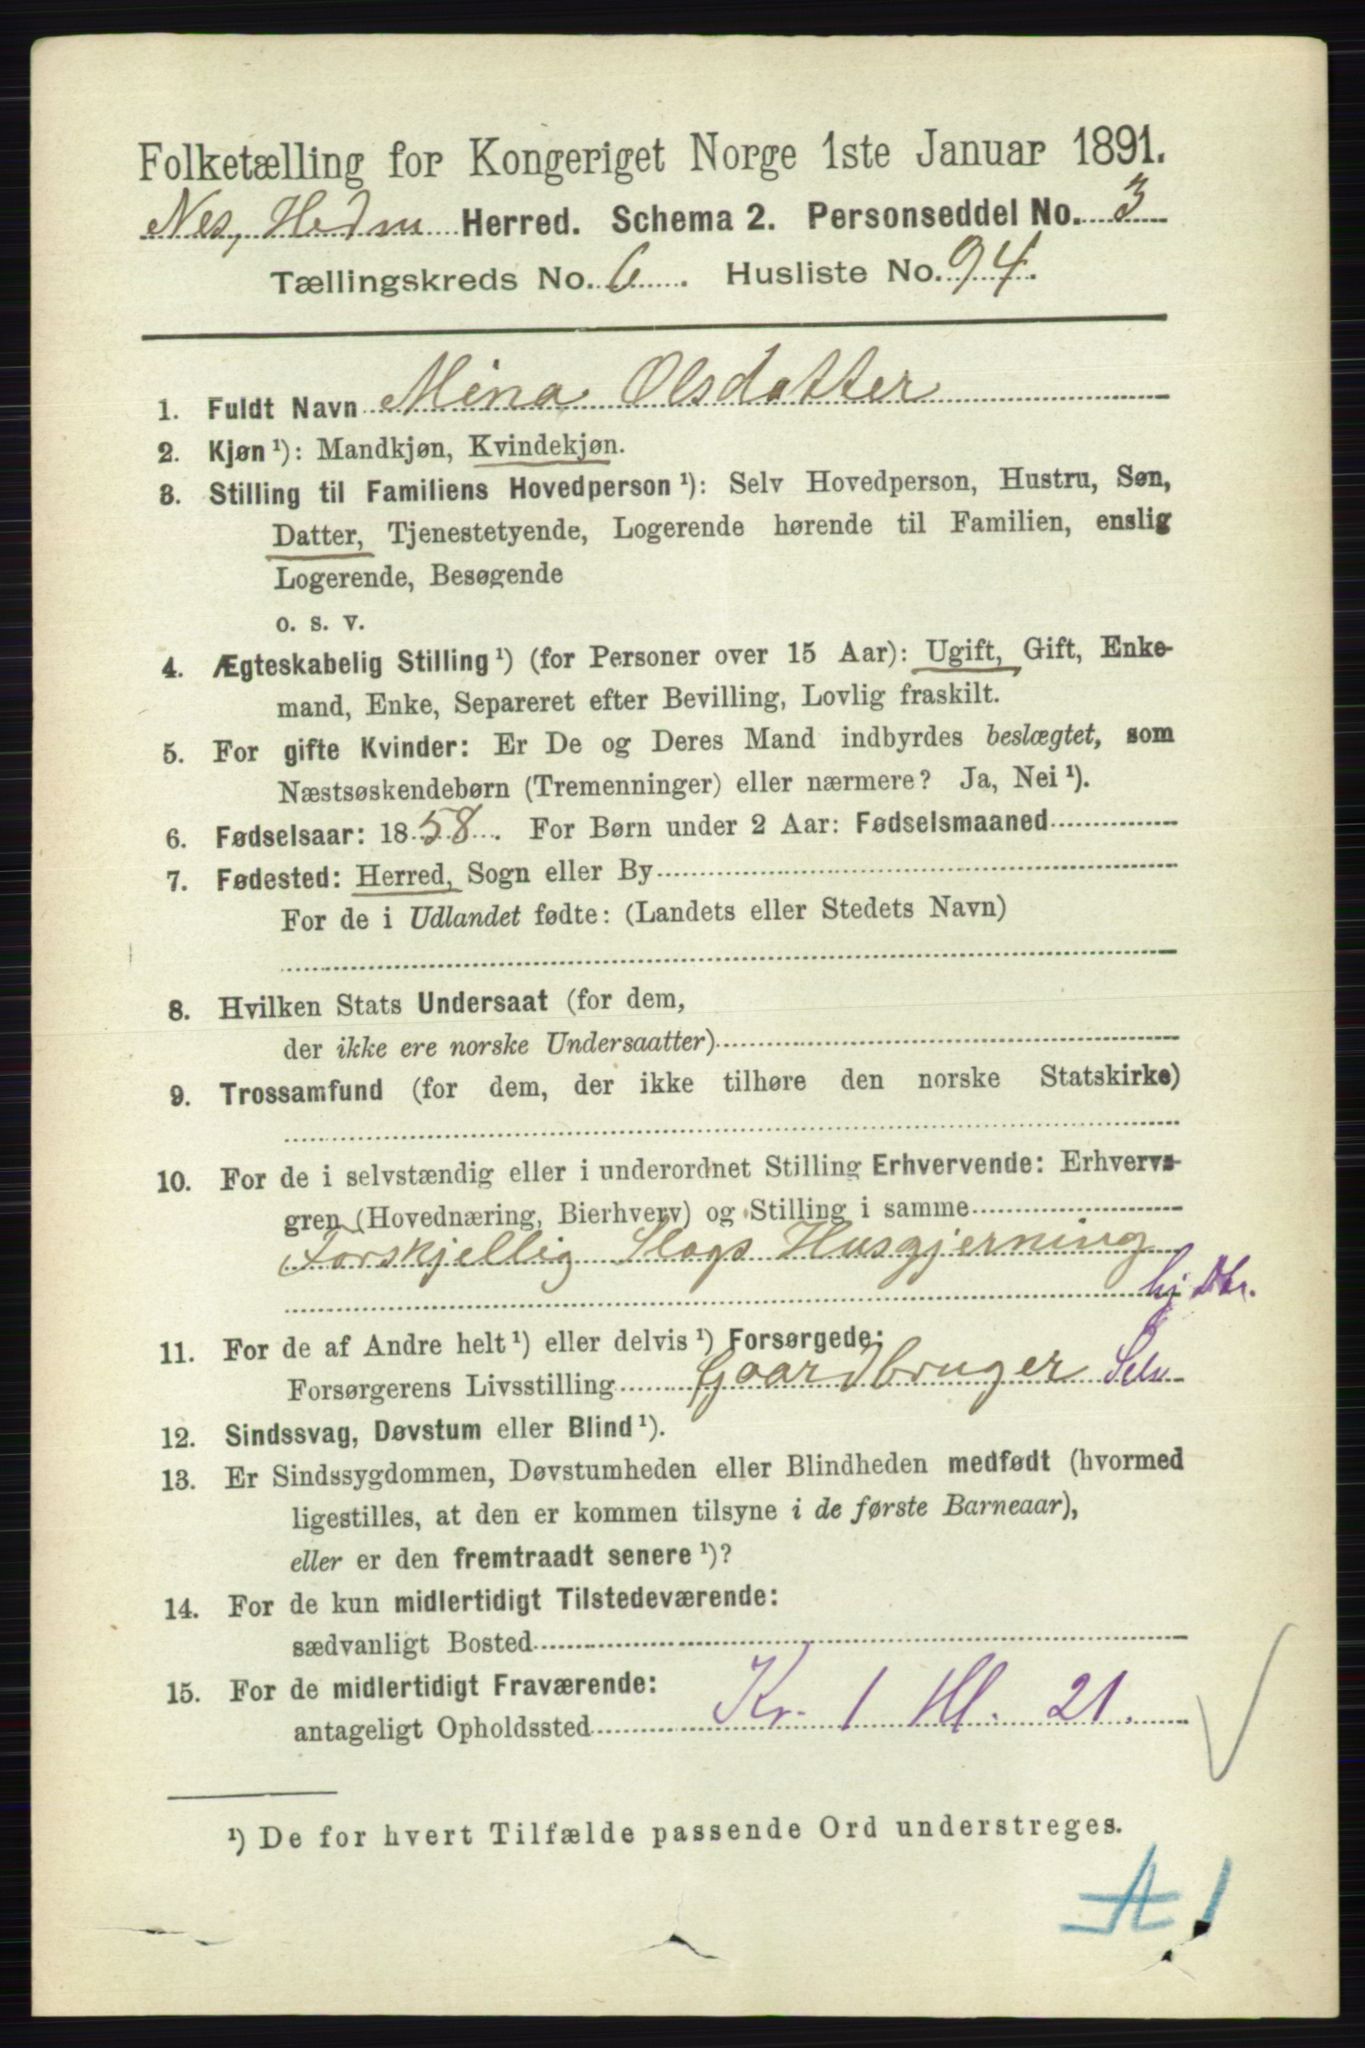 Folketælling for Kongeriget Norge 1ste Januar 1891.
Nes, Hedm Herred. Schema 2. Personseddel No. 3
Tællingskreds No. 6. Husliste No. 94.
1. Fuldt Navn Mina Olsdatter
2. Kjøn ¹): Mandkjøn, Kvindekjøn.
3. Stilling til Familiens Hovedperson ¹): Selv Hovedperson, Hustru, Søn,
Datter, Tjenestetyende, Logerende hørende til Familien, enslig
Logerende, Besøgende
o. s. v.
4. Ægteskabelig Stilling ¹) (for Personer over 15 Aar): Ugift, Gift, Enke-
mand, Enke, Separeret efter Bevilling, Lovlig fraskilt.
5. For gifte Kvinder: Er De og Deres Mand indbyrdes beslægtet, som
Næstsøskendebørn (Tremenninger) eller nærmere? Ja, Nei ¹).
6. Fødselsaar: 1858. For Børn under 2 Aar: Fødselsmaaned
7. Fødested: Herred, Sogn eller By
For de i Udlandet fødte: (Landets eller Stedets Navn)
8. Hvilken Stats Undersaat (for dem,
der ikke ere norske Undersaatter)
9. Trossamfund (for dem, der ikke tilhøre den norske Statskirke)
10. For de i selvstændig eller i underordnet Stilling Erhvervende: Erhvervs-
gren (Hovednæring, Bierhverv) og Stilling i samme
Forskjellig Slags Husgjerning
hj Dtr.
11. For de af Andre helt ¹) eller delvis ¹) Forsørgede:
Forsørgerens Livsstilling Gaardbruger Selv
12. Sindssvag, Døvstum eller Blind ¹).
13. Er Sindssygdommen, Døvstumheden eller Blindheden medfødt (hvormed
ligestilles, at den er kommen tilsyne i de første Barneaar),
eller er den fremtraadt senere ¹)?
14. For de kun midlertidigt Tilstedeværende:
sædvanligt Bosted
15. For de midlertidigt Fraværende:
antageligt Opholdssted Kr. 1 Hl. 21.
¹) De for hvert Tilfælde passende Ord understreges.
A 1